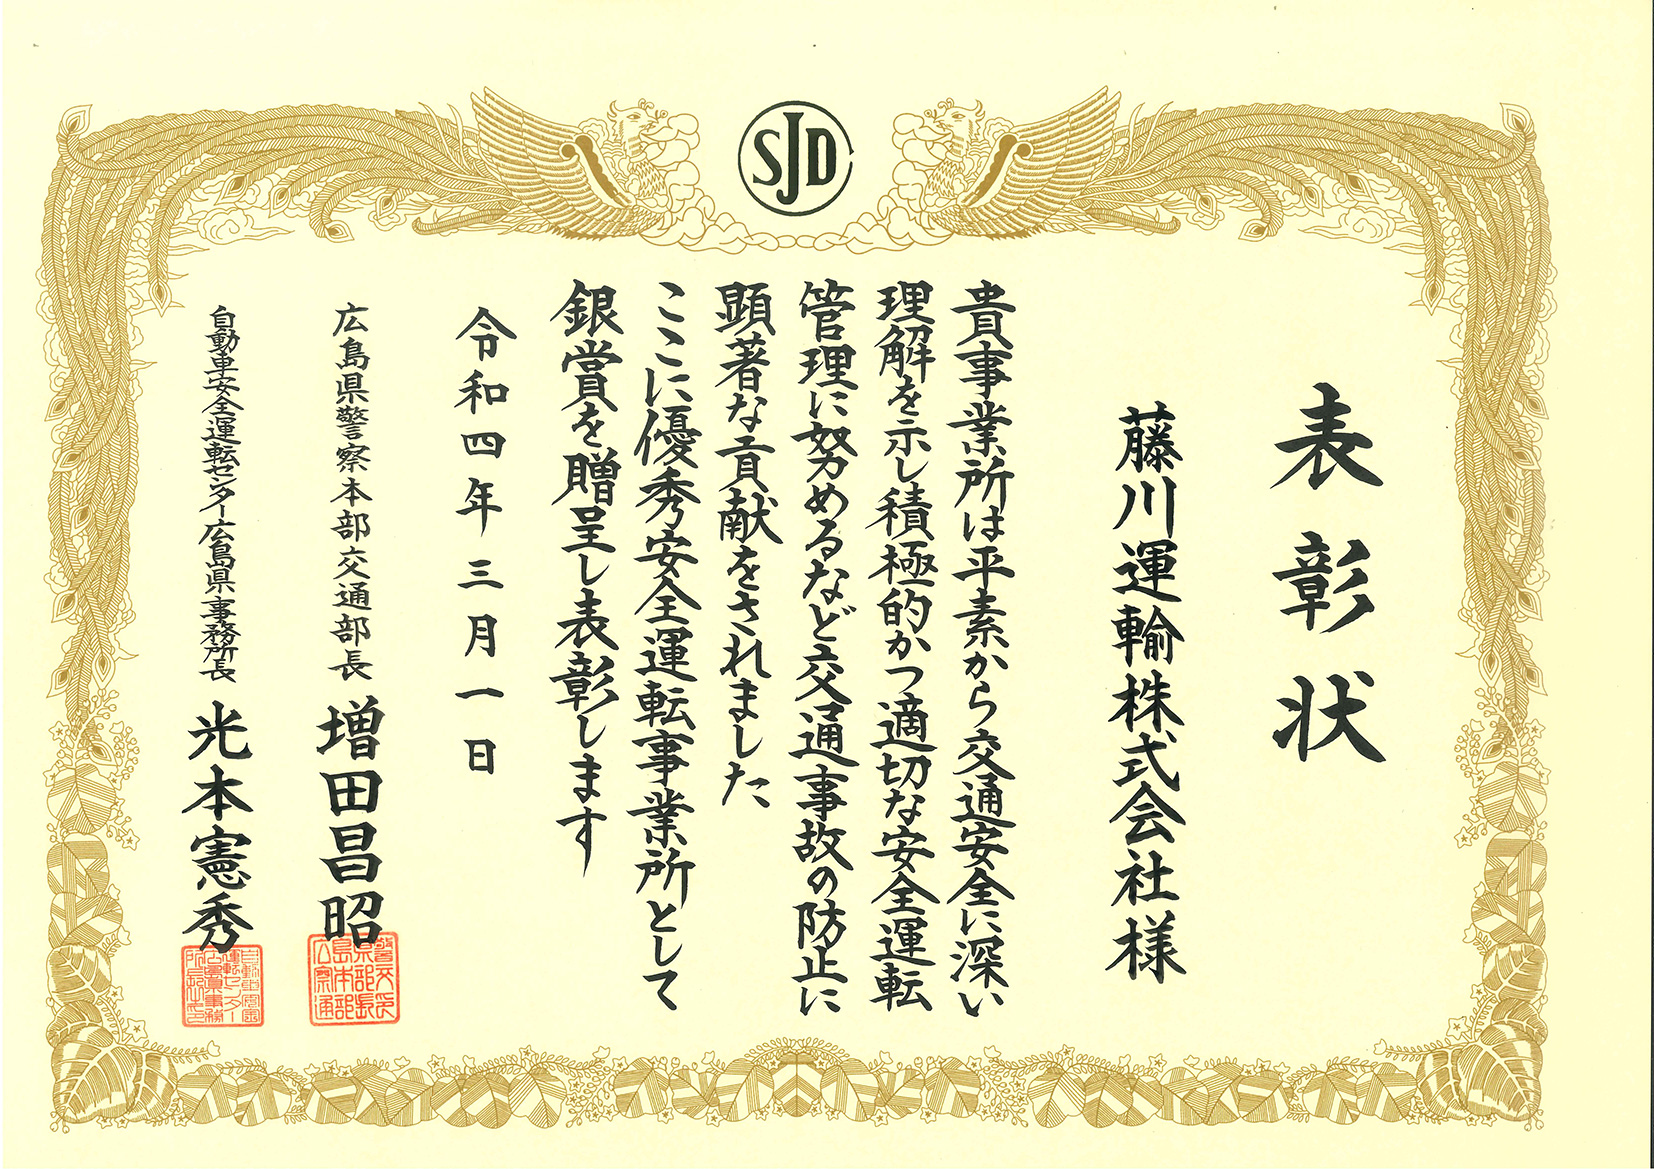 SJD
表彰状
藤川運輸株式会社様
貴事業所は平素から交通安全に深い
理解を示し積極的かつ適切な安全運転
管理に努めるなど交通事故の防止に
顕著な貢献をされました
ここに優秀安全運転事業所として
銀賞を贈呈し表彰します
令和四年三月一日
広島県警察本部交通部長 増田昌昭
自動車安全運転センター広島県事務所長 光本憲秀